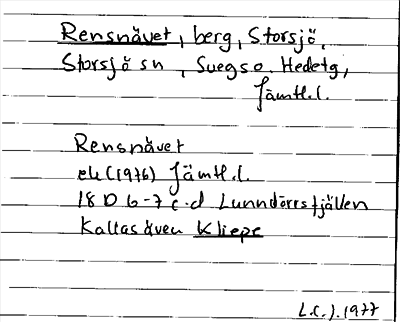 Rensnåvet, berg, Storsjö,
Storsjö sn, Svegs o. Hedetg,
Jämtl.l.
Rensnåvet
ek (1976) Jämtl.l.
18 D 6-7 c.d Lunndörrsfjällen
Kallas även Kliepe
L.C.J. 1977